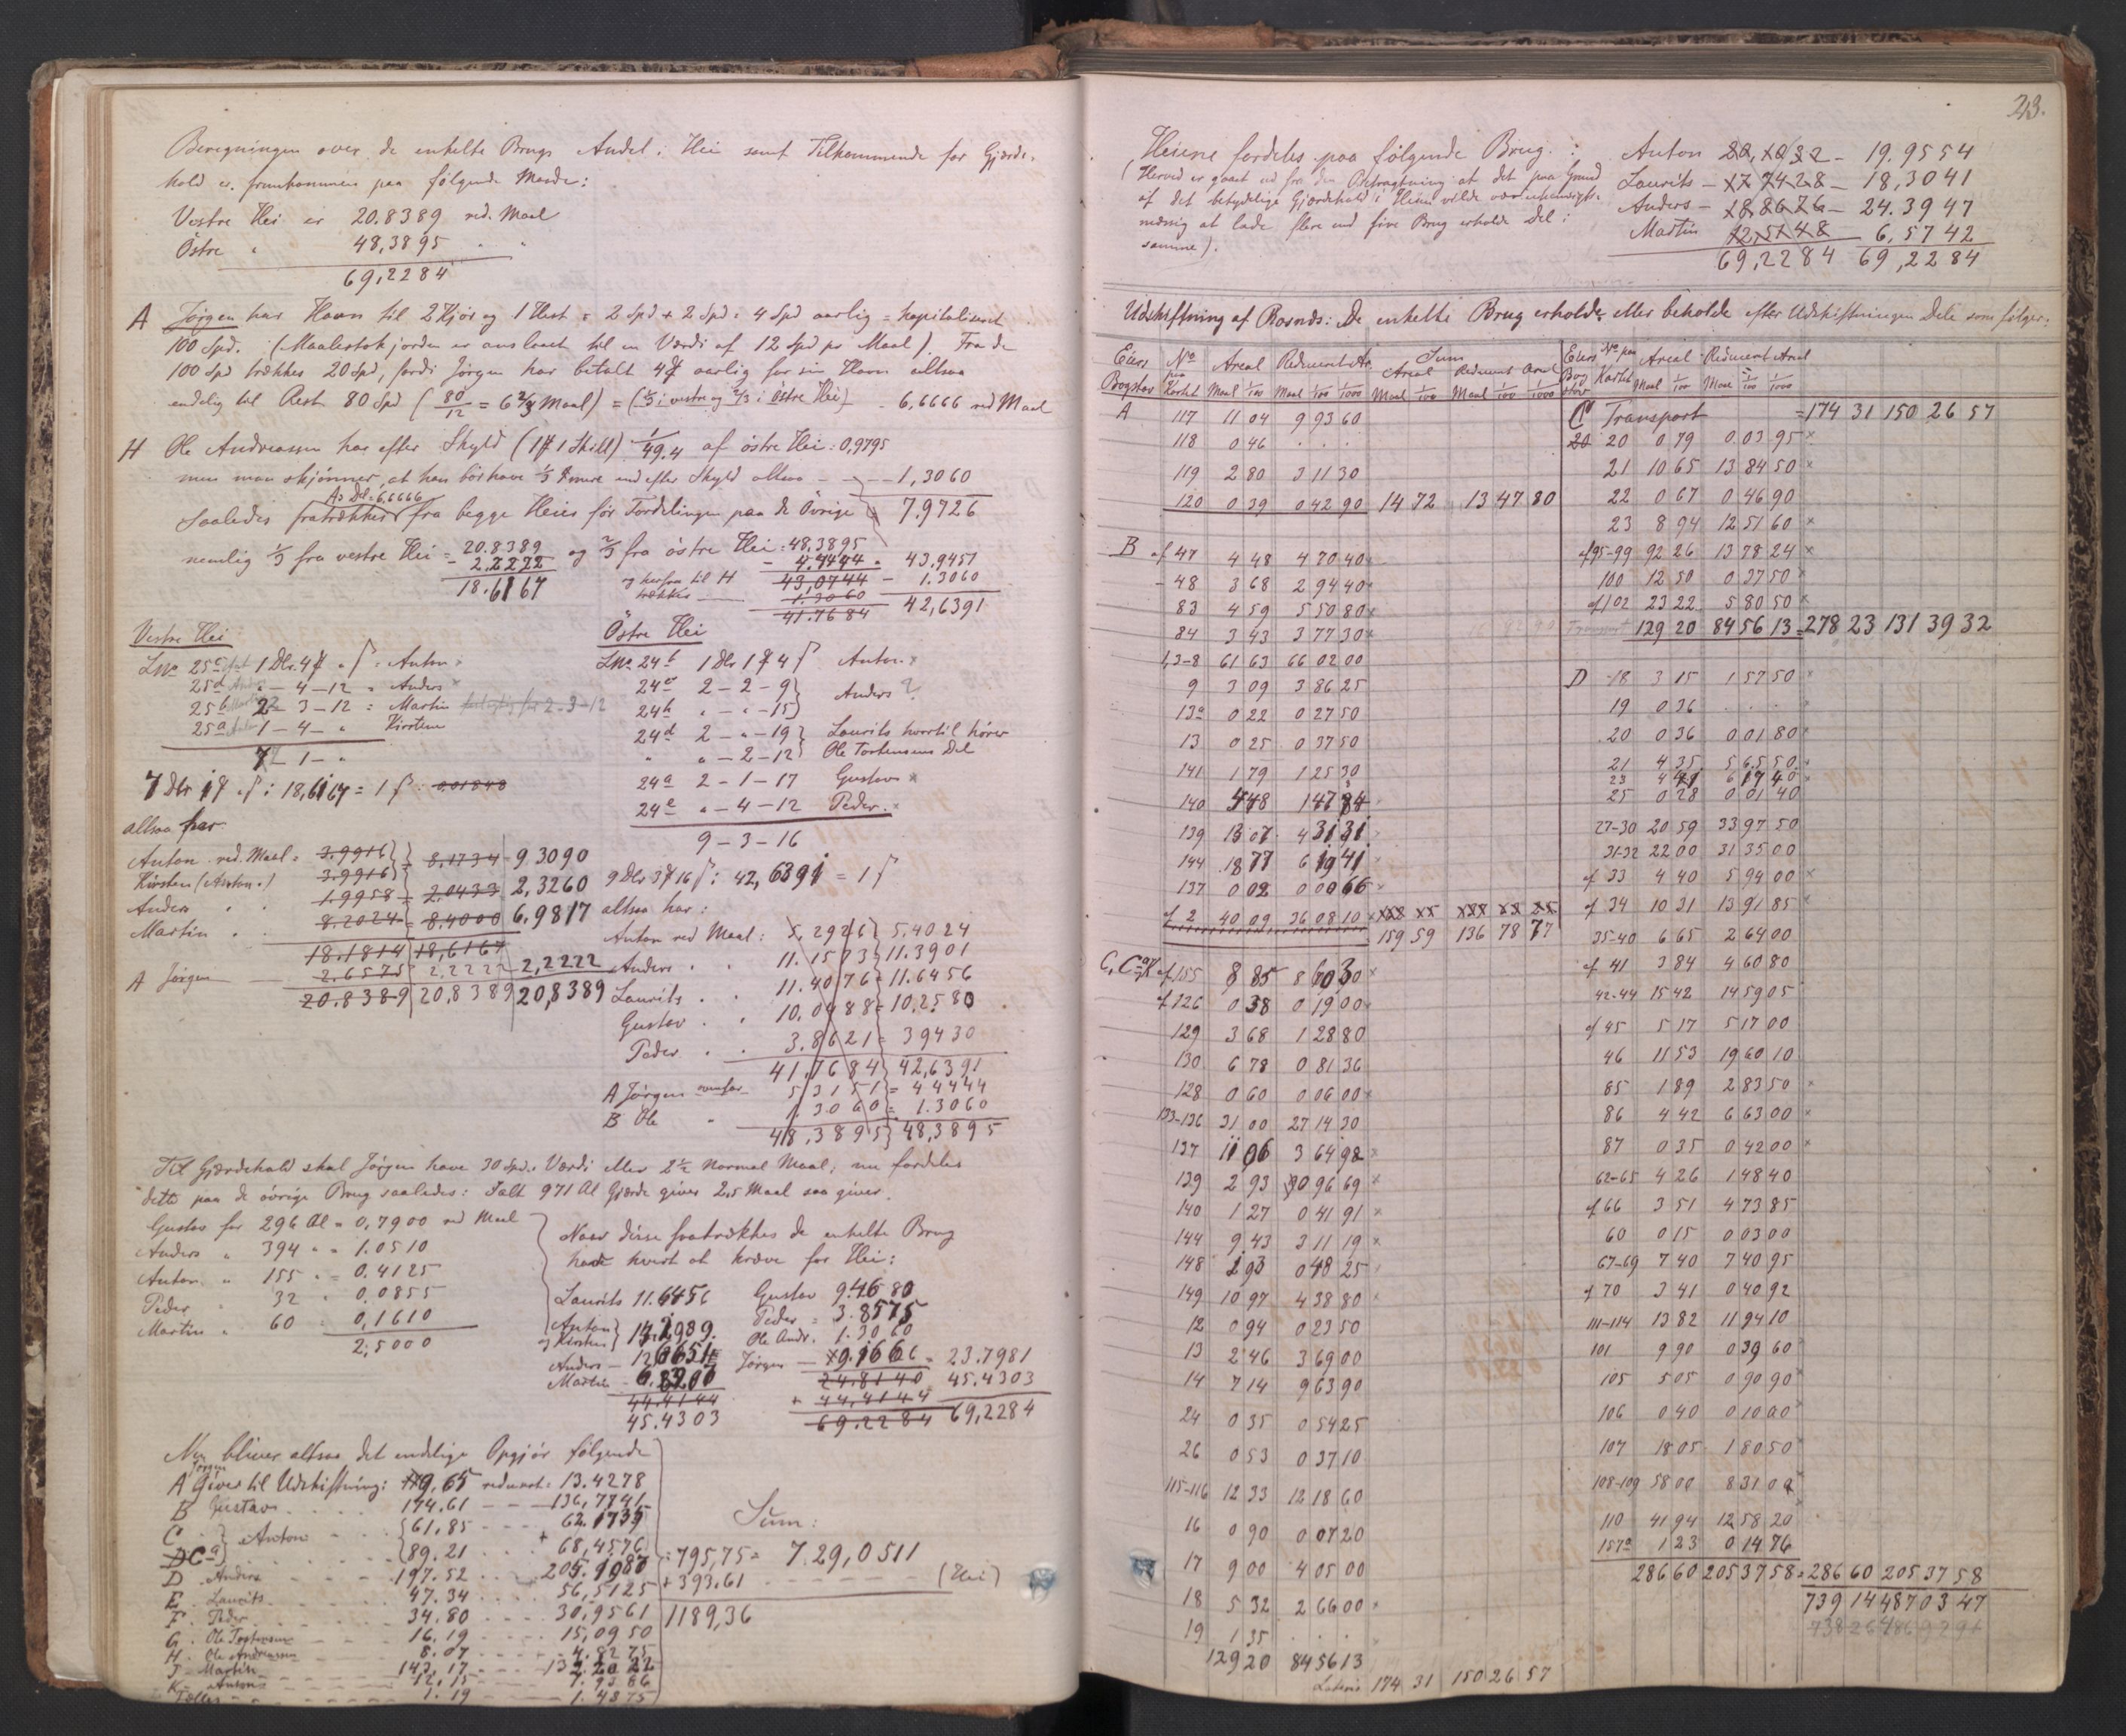 Beregningen over de enkelte Brugs Andel i Hei samt Tilkommende for Gjærde-
hold er fremkommen paa følgende Maade:
Vestre Hei er 20.8389 red. Maal
Østre " 48,3895 " "
69,2284
A Jørgen har Havn til 2 Kjør og 1 Hest = 2 Spd + 2 Spd = 4 Spd aarlig = kapitaliseret
100 Spd. (Maalestokjorden er anslaaet til en Værdi af 12 Spd pr Maal). Fra de
100 Spd trækkes 20 Spd, fordi Jørgen har betalt 4 aarlig for sin Havn altsaa
endelig til Rest 80 Spd (80/12 = 6 2/3 Maal) = (1/3 i vestre og 2/3 i østre Hei) - 6,6666 red Maal
H Ole Andreassen har efter Skyld (1 1 Skill) 1/49.4 af østre Hei: 0,9795
men man skjønner, at han bør have 1/3 mere end efter Skyld altsaa - - 1,3060
As Del = 6,6666
Saaledes fratrækkes fra begge Heier før Fordelingen paa de Øvrige 7.9726
nemlig 1/3 fra vestre Hei = 20.8389 og 2/3 fra østre Hei = 48,3895
- 2,2222 - 4,4444 = 43.9451
18.6167 og herfra til H trækkes 43,0744 - 1.3060
1.3060 42,6391
41.7684
Vestre Hei
LNo 25c 1 Dlr. 4 " = Anton
25d " - 4 - 12 = Anders
25b 2 - 3 - 12 = Martin
25a 1 - 4 - " Kirsten
7 - 1 - "
7 Dlr 1 : 18,6167 = 1 : 0,01848
altsaa har
Anton red. Maal = 3.9916 = 8,1734 - 9.3090
Kirsten (Anton.) 3.9916
Anders " " 1.9958 = 2.0433 2,3260
Martin " " 8.2024 = 8.4000 6.9817
18.1814 18,6167
A Jørgen 2.6575 2,2222 2,2222
20.8389 20,8389 20,8389
Østre Hei
LNo 24f 1 Dlr 1 4 Anton.
24c 2 - 2 - 9 } Anders
24h " - " - 15 }
24d 2 - " - 19 } Laurits hvortil hører
" " - 2 - 12 } Ole Torkensens Del
24a 2 - 1 - 17 Gustav
24e " - 4 - 12 Peder.
9 - 3 - 16
9 Dlr 3 16 : 42,6391 = 1
altsaa har:
Anton red Maal: 5.2926 } 5.4024
Anders " " 11.1573 } 11.3901
Laurits " " 11.4076 = 11.6456
Gustav " " 10.0488 = 10.2580
Peder " " 3.8621 = 39430
41.7684 } 42,6391
A Jørgen ovenfor 5,3151 = 44444
B Ole " 1.3060 = 1.3060
48,3895 } 48,3895
Til Gjærdehold skal Jørgen have 30 Spd.s Værdi eller 2 1/2 Normal Maal; nu fordeles
dette paa de øvrige Brug saaledes: Ialt 971 Al Gjærde giver 2,5 Maal saa giver
Gustav for 296 Al = 0,7900 red Maal
Anders " 394 " = 1.0510
Anton " 155 " = 0.4125
Peder " 32 " 0,0855
Martin " 60 " 0,1610
2,5000
Naar disse fratrækkes de enkelte Brug
havde hvert at kræve for Hei:
Laurits 11.6456 Gustav 9.4680
Anton og Kirsten } 14.2989. Peder = 3.8575
Ole Andr. 1.3060
Anders - 12,6651 Jørgen - 9.1666 = 23.7981
Martin - 6.8207 24.8140 45.4303
44.4144 + 44,4144
45.4303 69.2284 69,2284
Nu bliver altsaa det endelige Opgjør følgende
A Jørgen Giver til Udskiftning: 9,65 reduceret: 13.4278
B Gustav 174.61 - - 136,7741
C } Anton {61,85 62.1739
DCa } {89.21 + 68,4576
D Anders 197.52 205.9087
E. Laurits 47.34 56,5125
F. Peder 34.80 30,9561
G. Ole Torkensen 16.19 15,0950
H. Ole Andreassen 8.07 4.8275
J - Martin 143.17 132.2022
K - Anton 12.15 7.9386
Fælles 1.19 1.4875
Sum:
= 795,75 = 7.29,0511
+ 393.61 (Hei)
1189,36
213.
Heiene fordeles paa følgende Brug:
(Herved er gaaet ud fra den Betragtning at det paa Grund
af det betydelige Gjærdehold i Heien vilde være uhensigts-
mæssig at lade flere end fire Brug erholde Del i
samme).
Anton 22,1032 - 19.9554
Laurits - 17 7428 - 18,3041
Anders - 18 8676 - 24.3947
Martin 12,5148 6,5742
69,2284 69,2284
Udskiftning af Rosnæs: De enkelte Brug erholder eller beholder efter Udskiftningen Dele som følger:
Eiers Bogstav No paa Kartet Areal Reduceret Ar. Sum Areal Reduceret Areal Eiers Bogstav No paa Kartet Areal Reduceret Areal
Maal 1/100 Maal 1/100 1/1000 Maal 1/100 Maal 1/100 1/1000 Maal 1/100 Maal 1/100 1/1000
A 117 11 04 9 93 60
118 0 46 . . .
119 2 80 3 11 30
120 0 39 0 42 90 14 72 13 47 80
B af 47 4 48 4 70 40
- 48 3 68 2 94 40
83 4 59 5 50 80
84 3 43 3 77 30
1,3-8 61 63 66 02 00
9 3 09 3 86 25
13a 0 22 0 27 50
13 0 25 0 37 50
141 1 79 1 25 30
140 4 48 1 47 84
139 13 07 4 31 31
144 18 77 6 19 41
137 0 02 0 00 66
af 2 40 09 36 08 10
159 59 136 78 77
C, Ca, K af 155 8 85 8 60 30
af 126 0 38 0 19 00
129 3 68 1 28 80
130 6 78 0 81 36
128 0 60 0 06 00
133-136 31 00 27 14 30
137 11 06 3 64 98
139 2 93 0 96 69
140 1 27 0 41 91
144 9 43 3 11 19
148 1 93 0 48 25
149 10 97 4 38 80
12 0 94 0 23 50
13 2 46 3 69 00
14 7 14 9 63 90
24 0 35 0 54 25
26 0 53 0 37 10
115-116 12 33 12 18 60
16 0 90 0 07 20
17 9 00 4 05 00
18 5 32 2 66 00
19 1 35 . . .
129 20 84 56 13
Lateris 174 31 150 26 57
C Transport = 174 31 150 26 57
20 20 0 79 0 03 95
21 10 65 13 84 50
22 0 67 0 46 90
23 8 94 12 51 60
af 95-99 92 26 13 78 24
100 12 50 0 37 50
af 102 23 22 5 80 50
Transport 129 20 84 56 13 = 278 23 131 39 32
D 18 3 15 1 57 50
19 0 36 . . .
20 0 36 0 01 80
21 4 35 5 65 50
23 4 41 6 17 40
25 0 28 0 01 40
27-30 20 59 33 97 50
31-32 22 00 31 35 00
af 33 4 40 5 94 00
af 34 10 31 13 91 85
35-40 6 65 2 64 00
af 41 3 84 4 60 80
42-44 15 42 14 59 05
af 45 5 17 5 17 00
46 11 53 19 60 10
85 1 89 2 83 50
86 4 42 6 63 00
87 0 35 0 42 00
62-65 4 26 1 48 40
af 66 3 51 4 73 85
60 0 15 0 03 00
67-69 7 40 7 40 95
af 70 3 41 0 40 92
111-114 13 82 11 94 10
101 9 90 0 39 60
105 5 05 0 90 90
106 0 40 0 10 00
107 18 05 1 80 50
108-109 58 00 8 31 00
110 41 94 12 58 20
157a 1 23 0 14 76
286 60 205 37 58 = 286 60 205 37 58
739 14 487 03 47